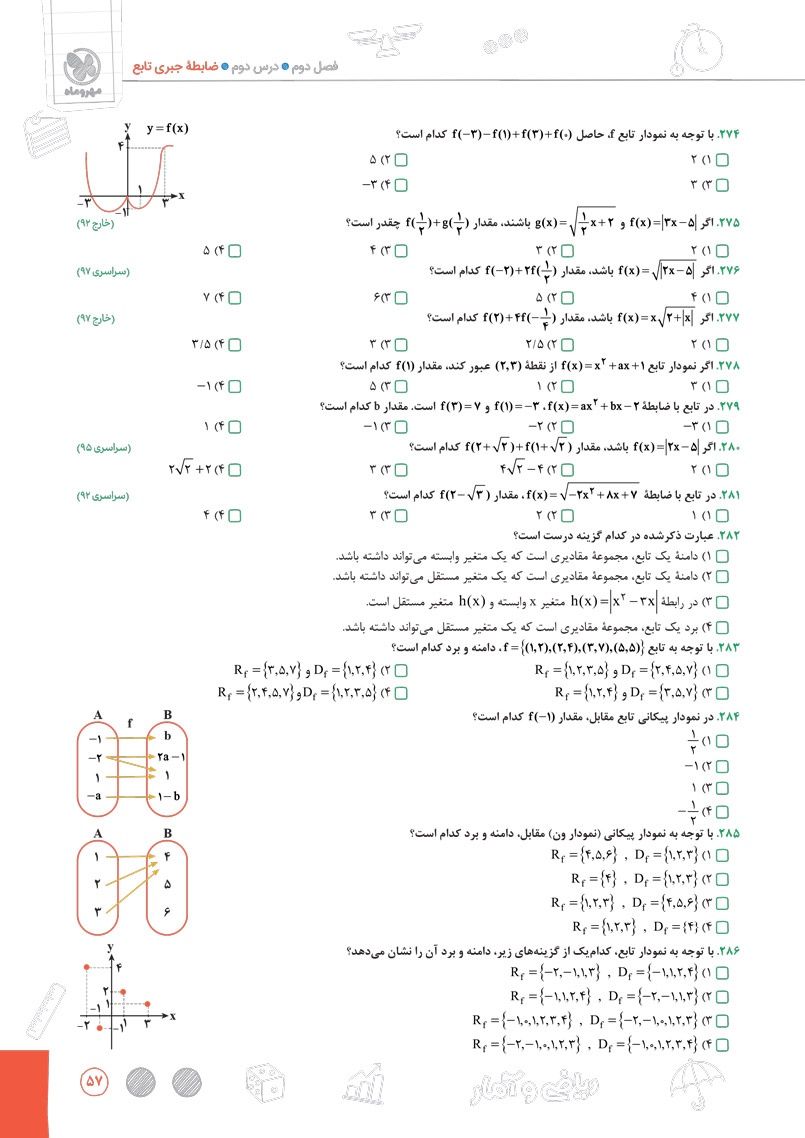 فصل دوم • درس دوم • ضابطهٔ جبری تابع
مهروماه
۲۷۴. با توجه به نمودار تابع f، حاصل f(−۳)−f(۱)+f(۳)+f(۰) کدام است؟
۱) ۲
۲) ۵
۳) ۳
۴) −۳
y
y = f(x)
۴
−۳
۱
۳
x
−۱
۲۷۵. اگر f(x) = |۳x−۵| و g(x) = √(۱/۲ x+۲) باشند، مقدار f(۱/۲)+g(۱/۲) چقدر است؟ (خارج ۹۲)
۱) ۲ ۲) ۳ ۳) ۴ ۴) ۵
۲۷۶. اگر f(x) = √|۲x−۵| باشد، مقدار f(−۲)+۲f(۱/۲) کدام است؟ (سراسری ۹۷)
۱) ۴ ۲) ۵ ۳) ۶ ۴) ۷
۲۷۷. اگر f(x) = x√(۲+|x|) باشد، مقدار f(۲)+۴f(−۱/۴) کدام است؟ (خارج ۹۷)
۱) ۲ ۲) ۲/۵ ۳) ۳ ۴) ۳/۵
۲۷۸. اگر نمودار تابع f(x) = x²+ax+۱ از نقطهٔ (۲,۳) عبور کند، مقدار f(۱) کدام است؟
۱) ۳ ۲) ۱ ۳) ۵ ۴) −۱
۲۷۹. در تابع با ضابطهٔ f(x) = ax²+bx−۲، f(۱) = −۳ و f(۳) = ۷ است. مقدار b کدام است؟
۱) −۳ ۲) −۲ ۳) −۱ ۴) ۱
۲۸۰. اگر f(x) = |۲x−۵| باشد، مقدار f(۲+√۲)+f(۱+√۲) کدام است؟ (سراسری ۹۵)
۱) ۲ ۲) ۴√۲−۴ ۳) ۳ ۴) ۲√۲+۲
۲۸۱. در تابع با ضابطهٔ f(x) = √(−۲x²+۸x+۷)، مقدار f(۲−√۳) کدام است؟ (سراسری ۹۲)
۱) ۱ ۲) ۲ ۳) ۳ ۴) ۴
۲۸۲. عبارت ذکرشده در کدام گزینه درست است؟
۱) دامنهٔ یک تابع، مجموعهٔ مقادیری است که یک متغیر وابسته می‌تواند داشته باشد.
۲) دامنهٔ یک تابع، مجموعهٔ مقادیری است که یک متغیر مستقل می‌تواند داشته باشد.
۳) در رابطهٔ h(x) = |x²−۳x| متغیر x وابسته و h(x) متغیر مستقل است.
۴) برد یک تابع، مجموعهٔ مقادیری است که یک متغیر مستقل می‌تواند داشته باشد.
۲۸۳. با توجه به تابع f = {(۱,۲),(۲,۴),(۳,۷),(۵,۵)}، دامنه و برد کدام است؟
۱) D_f = {۲,۴,۵,۷} و R_f = {۱,۲,۳,۵}
۲) D_f = {۱,۲,۴} و R_f = {۳,۵,۷}
۳) D_f = {۳,۵,۷} و R_f = {۱,۲,۴}
۴) D_f = {۱,۲,۳,۵} و R_f = {۲,۴,۵,۷}
۲۸۴. در نمودار پیکانی تابع مقابل، مقدار f(−۱) کدام است؟
۱) ۱/۲
۲) −۱
۳) ۱
۴) −۱/۲
A f B
−۱ b
−۲ ۲a−۱
۱ ۱
−a ۱−b
۲۸۵. با توجه به نمودار پیکانی (نمودار ون) مقابل، دامنه و برد کدام است؟
۱) D_f = {۱,۲,۳} , R_f = {۴,۵,۶}
۲) D_f = {۱,۲,۳} , R_f = {۴}
۳) D_f = {۴,۵,۶} , R_f = {۱,۲,۳}
۴) D_f = {۴} , R_f = {۱,۲,۳}
A B
۱ ۴
۲ ۵
۳ ۶
۲۸۶. با توجه به نمودار تابع، کدام‌یک از گزینه‌های زیر، دامنه و برد آن را نشان می‌دهد؟
۱) D_f = {−۱,۱,۲,۴} , R_f = {−۲,−۱,۱,۳}
۲) D_f = {−۲,−۱,۱,۳} , R_f = {−۱,۱,۲,۴}
۳) D_f = {−۲,−۱,۰,۱,۲,۳} , R_f = {−۱,۰,۱,۲,۳,۴}
۴) D_f = {−۱,۰,۱,۲,۳,۴} , R_f = {−۲,−۱,۰,۱,۲,۳}
y
۴
۲
۱
−۲ −۱ ۱ ۳ x
−۱
ریاضی و آمار
۵۷